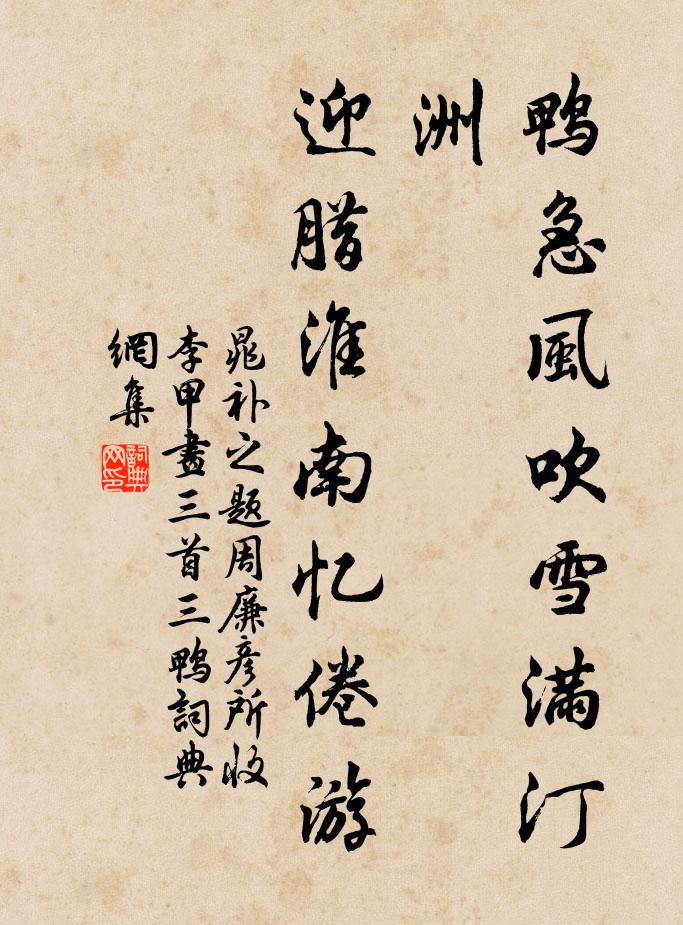 鸭急風吹雪滿汀
洲
迎腊淮南忆倦游
晁补之题周廉彦所收
李甲畫三首三鸭詞典
網集
詞典
网印